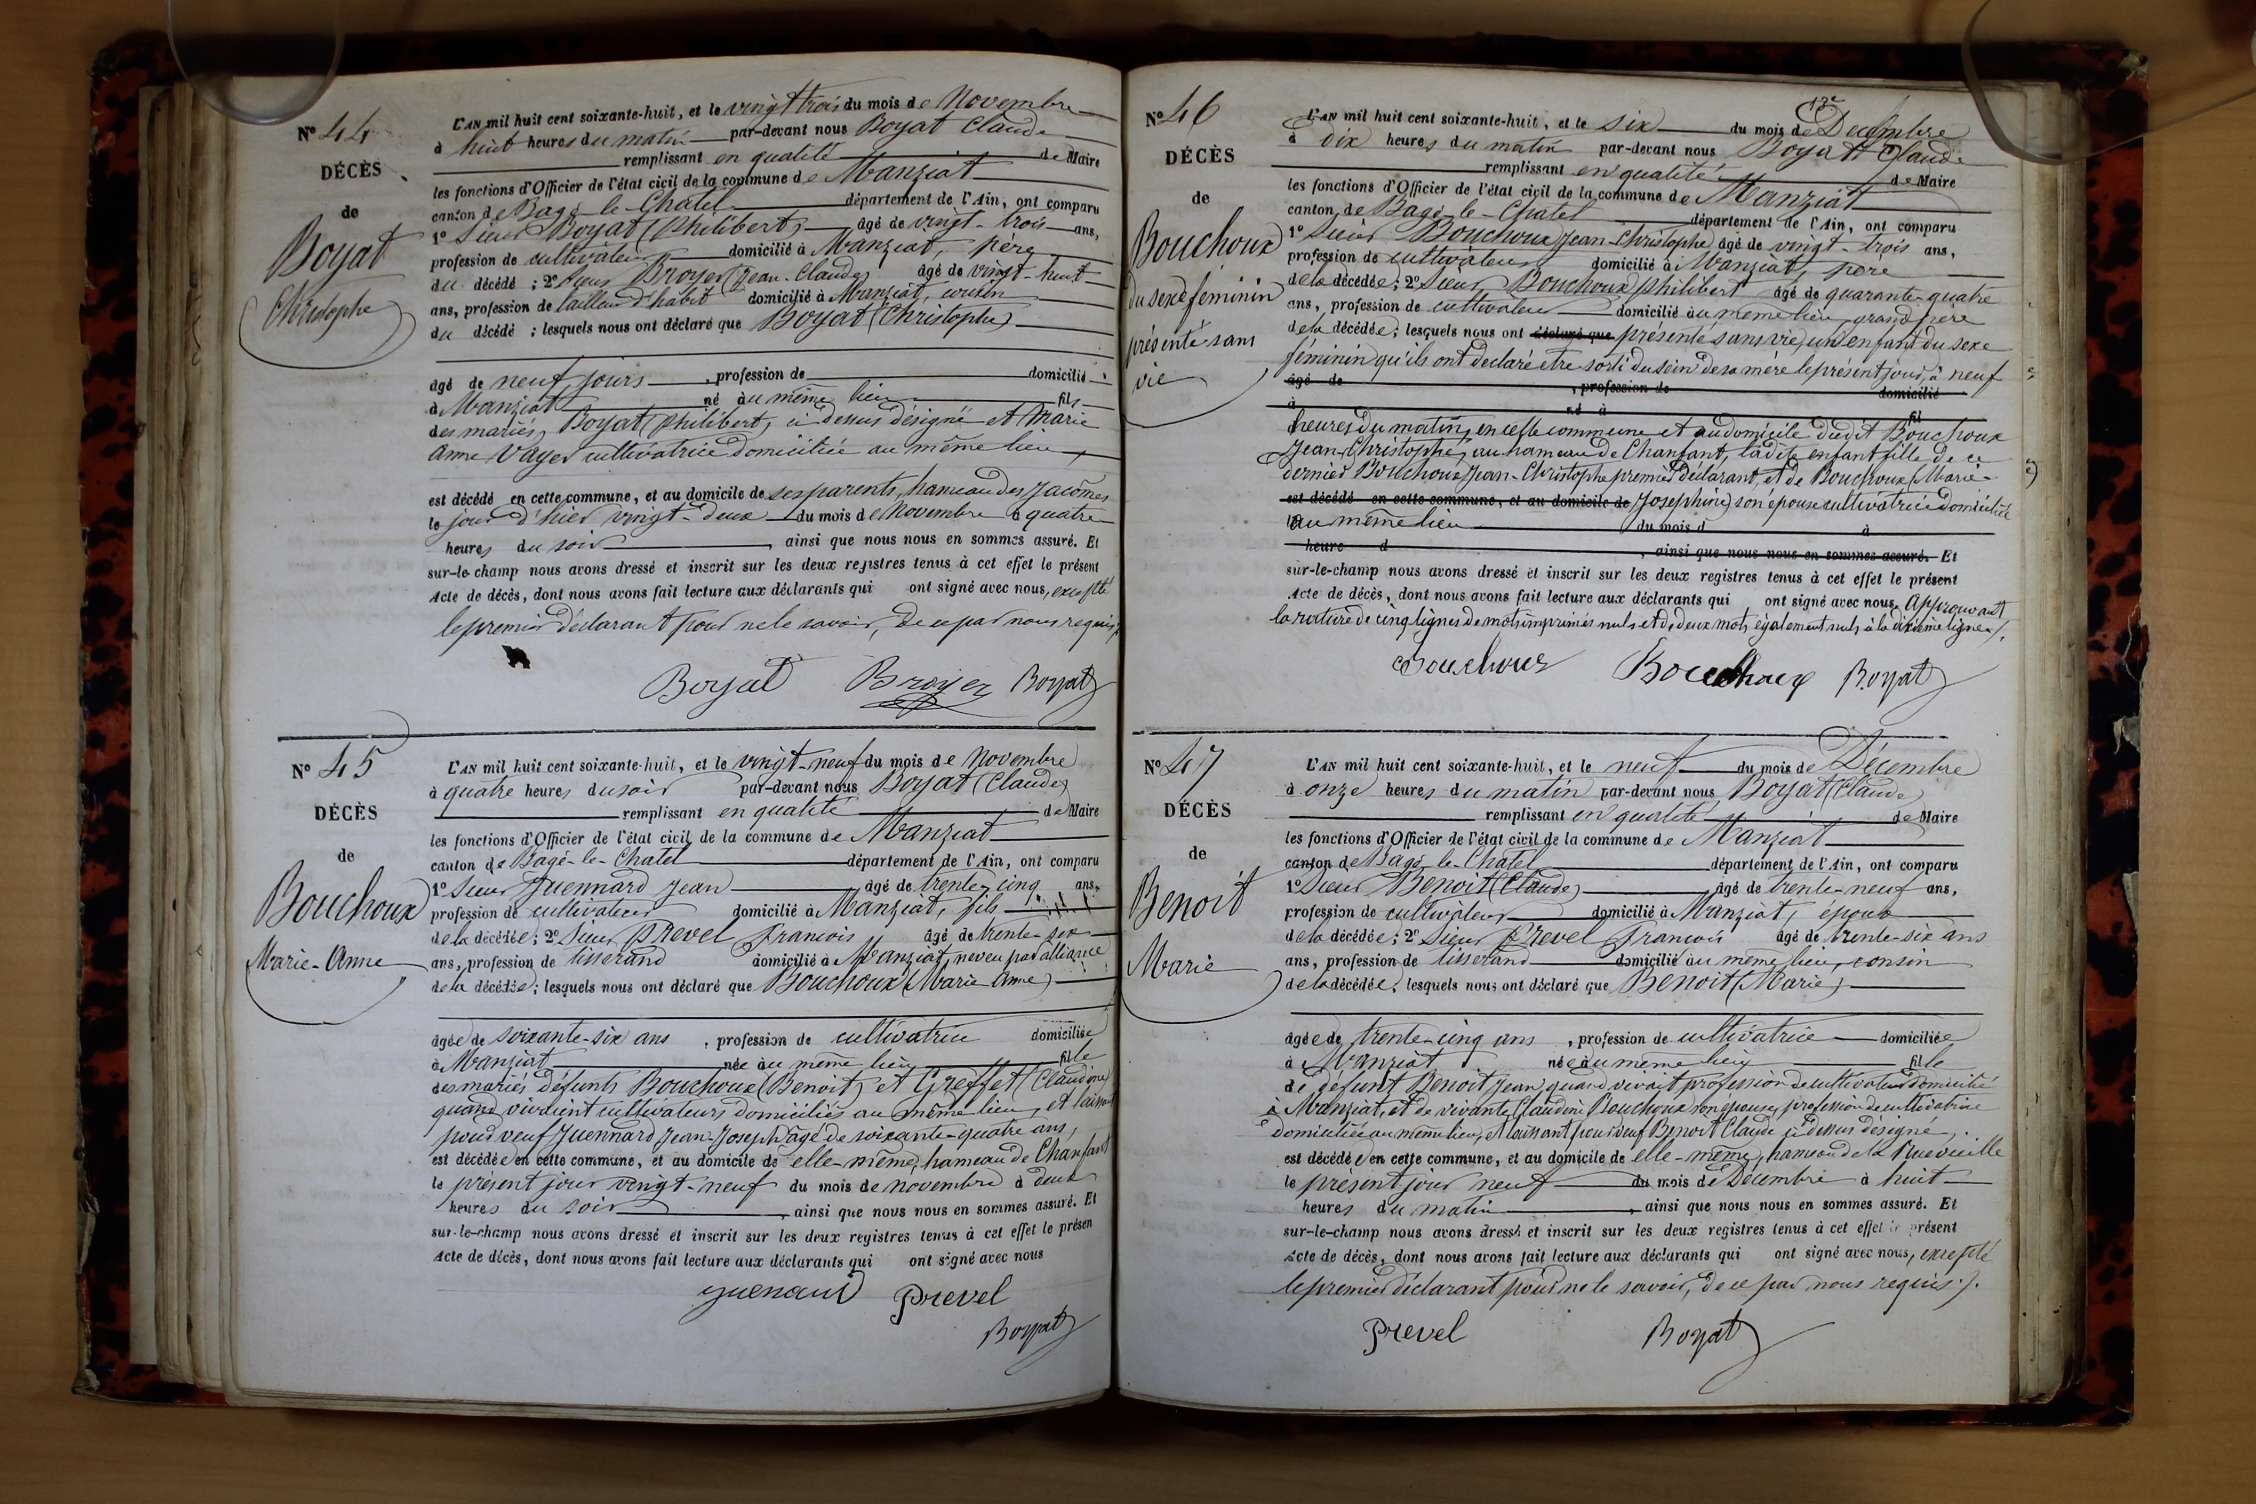 N° 44
DÉCÈS
de
Boyat
Christophe
L'AN mil huit cent soixante-huit, et le vingt trois du mois de Novembre
à huit heures du matin par-devant nous Boyat Claude
remplissant en qualité de Maire
les fonctions d'Officier de l'état civil de la commune de Manziat
canton de Bagé-le-Chatel département de l'Ain, ont comparu
1° Sieur Boyat (Philibert) âgé de vingt-trois ans,
profession de cultivateur domicilié à Manziat, père
du décédé ; 2° Sieur Broyer (Jean-Claude) âgé de vingt-huit
ans, profession de tailleur d'habit domicilié à Manziat, cousin
du décédé ; lesquels nous ont déclaré que Boyat (Christophe)
âgé de neuf jours, profession de domicilié
à Manziat né au même lieu fils
des mariés, Boyat (Philibert) ci dessus désigné et Marie
Anne Vayer cultivatrice domiciliée au même lieu,
est décédé en cette commune, et au domicile de ses parents, hameau des Jacômes
le jour d'hier vingt-deux du mois de Novembre à quatre
heures du soir, ainsi que nous nous en sommes assuré. Et
sur-le-champ nous avons dressé et inscrit sur les deux registres tenus à cet effet le présent
Acte de décès, dont nous avons fait lecture aux déclarants qui ont signé avec nous, excepté
le premier déclarant pour ne le savoir, de ce par nous requis
Boyat Broyer Boyat
N° 45
DÉCÈS
de
Bouchoux
Marie-Anne
L'AN mil huit cent soixante-huit, et le vingt-neuf du mois de Novembre
à quatre heures du soir par-devant nous Boyat (Claude)
remplissant en qualité de Maire
les fonctions d'Officier de l'état civil de la commune de Manziat
canton de Bagé-le-Chatel département de l'Ain, ont comparu
1° Sieur Guennard Jean âgé de trente-cinq ans,
profession de cultivateur domicilié à Manziat, fils
de la décédée ; 2° Sieur Prevel François âgé de trente-six
ans, profession de tisserand domicilié à Manziat, neveu par alliance
de la décédée ; lesquels nous ont déclaré que Bouchoux (Marie Anne)
âgée de soixante-six ans, profession de cultivatrice domiciliée
à Manziat née au même lieu fille
des mariés défunts Bouchoux (Benoit) et Greffet (Claudine)
quand vivaient cultivateurs domiciliés au même lieu, et laissant
pour veuf Guennard Jean-Joseph âgé de soixante-quatre ans,
est décédée en cette commune, et au domicile de elle-même, hameau de Chanfant
le présent jour vingt-neuf du mois de novembre à deux
heures du soir, ainsi que nous nous en sommes assuré. Et
sur-le-champ nous avons dressé et inscrit sur les deux registres tenus à cet effet le présen
Acte de décès, dont nous avons fait lecture aux déclarants qui ont signé avec nous
Guenard Prevel
Boyat
N° 46
DÉCÈS
de
Bouchoux
du sexe féminin
présenté sans
vie
L'AN mil huit cent soixante-huit, et le six du mois de Décembre
à dix heures du matin par-devant nous Boyat Claude
remplissant en qualité de Maire
les fonctions d'Officier de l'état civil de la commune de Manziat
canton de Bagé-le-Chatel département de l'Ain, ont comparu
1° Sieur Bouchoux Jean-Christophe âgé de vingt-trois ans,
profession de cultivateur domicilié à Manziat, père
de la décédée ; 2° Sieur Bouchoux Philibert âgé de quarante-quatre
ans, profession de cultivateur domicilié au même lieu, grand père
de la décédée ; lesquels nous ont déclaré que présenté sans vie, un enfant du sexe
féminin qu'ils ont déclaré être sorti du sein de sa mère le présent jour, à neuf
âgé de, profession de domicilié
à né à fil
heures du matin, en cette commune et au domicile dudit Bouchoux
Jean-Christophe, au hameau de Chanfant, ladite enfant fille de ce
dernier Bouchoux Jean-Christophe premier déclarant, et de Bouchoux (Marie-
est décédé en cette commune, et au domicile de Josephine) son épouse cultivatrice domiciliée
au même lieu du mois d à
heure d, ainsi que nous nous en sommes assuré. Et
sur-le-champ nous avons dressé et inscrit sur les deux registres tenus à cet effet le présent
Acte de décès, dont nous avons fait lecture aux déclarants qui ont signé avec nous, Approuvant
la rature de cinq lignes de mots imprimés nuls et de deux mots également nuls à la dixième ligne ./.
Bouchoux Bouchoux Boyat
N° 47
DÉCÈS
de
Benoit
Marie
L'AN mil huit cent soixante-huit, et le neuf du mois de Décembre
à onze heures du matin par-devant nous Boyat (Claude)
remplissant en qualité de Maire
les fonctions d'Officier de l'état civil de la commune de Manziat
canton de Bagé-le-Chatel département de l'Ain, ont comparu
1° Sieur Benoit (Claude) âgé de trente-neuf ans,
profession de cultivateur domicilié à Manziat, époux
de la décédée ; 2° Sieur Prevel François âgé de trente-six ans
ans, profession de tisserand domicilié au même lieu, cousin
de la décédée, lesquels nous ont déclaré que Benoit (Marie)
âgée de trente-cinq ans, profession de cultivatrice domiciliée
à Manziat née au même lieu fille
de défunt Benoit Jean quand vivait profession de cultivateur domicilié
à Manziat, et de vivante Claudine Bouchoux son épouse, profession de cultivatrice
domiciliée au même lieu, et laissant pour veuf Benoit Claude ci dessus désigné,
est décédée en cette commune, et au domicile de elle-même, hameau de la Ruevieille
le présent jour neuf du mois de Décembre à huit
heures du matin, ainsi que nous nous en sommes assuré. Et
sur-le-champ nous avons dressé et inscrit sur les deux registres tenus à cet effet le présent
Acte de décès, dont nous avons fait lecture aux déclarants qui ont signé avec nous, excepté
le premier déclarant pour ne le savoir, de ce par nous requis ./.
Prevel Boyat